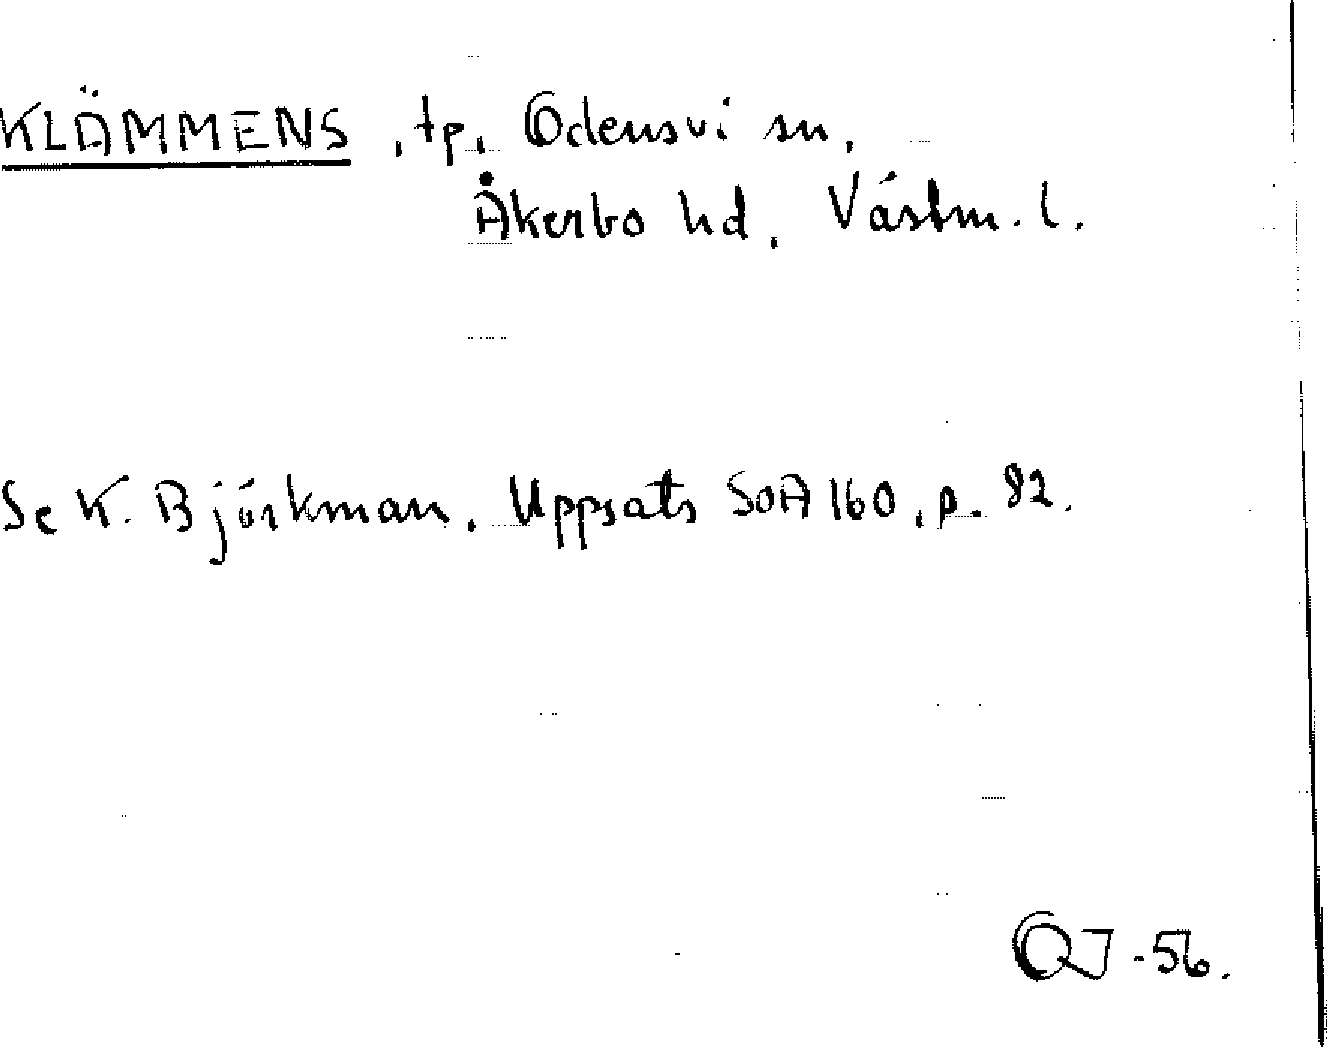 KLÄMMENS, tp. Odensvi sn,
Åkerbo hd, Västm. l.
Se K. Björkman, Uppsats SOA 160, p. 82.
OJ-56.